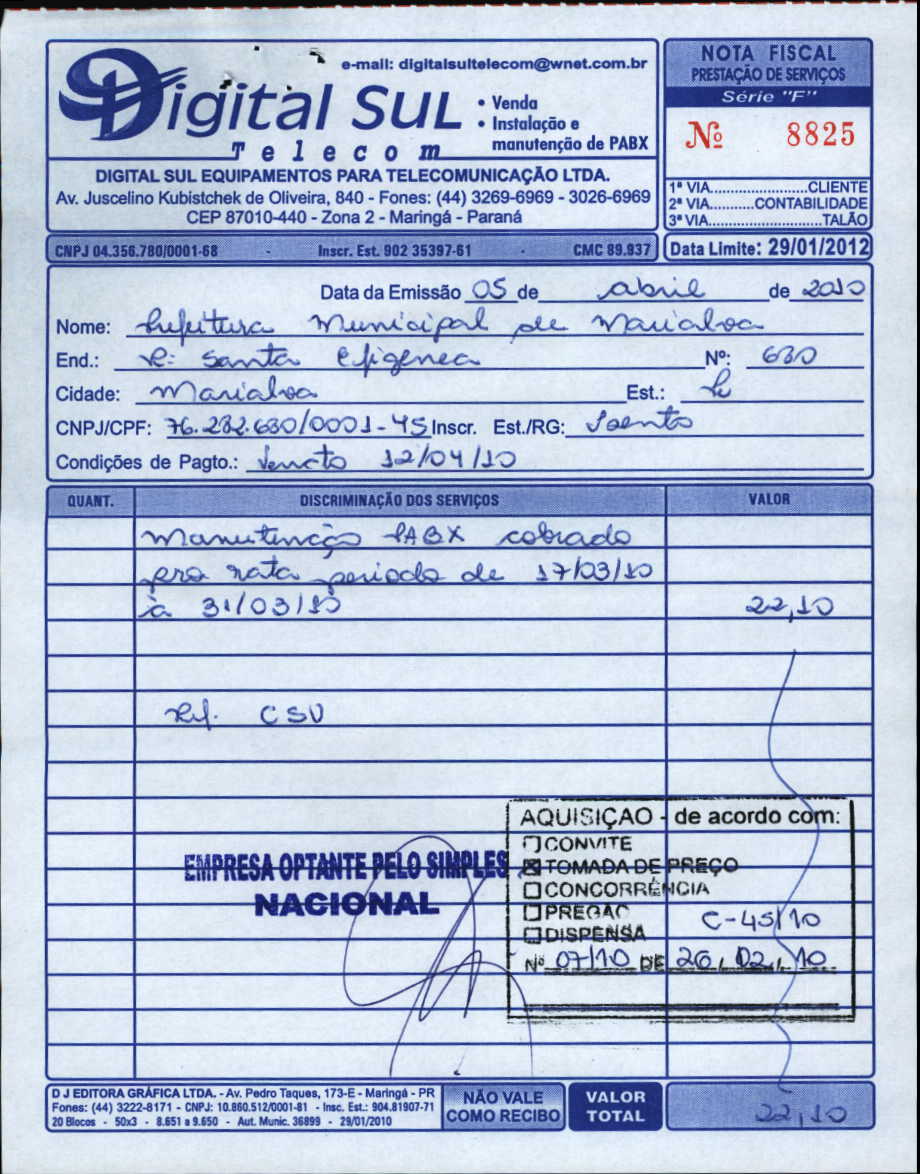 e-mail: digitalsultelecom@wnet.com.br
Digital Sul
Telecom
• Venda
• Instalação e
manutenção de PABX
DIGITAL SUL EQUIPAMENTOS PARA TELECOMUNICAÇÃO LTDA.
Av. Juscelino Kubistchek de Oliveira, 840 - Fones: (44) 3269-6969 - 3026-6969
CEP 87010-440 - Zona 2 - Maringá - Paraná
NOTA FISCAL
PRESTAÇÃO DE SERVIÇOS
Série "F"
Nº 8825
1ª VIA.....................CLIENTE
2ª VIA..........CONTABILIDADE
3ª VIA........................TALÃO
CNPJ 04.356.780/0001-68 - Inscr. Est. 902 35397-61 - CMC 89.937
Data Limite: 29/01/2012
Data da Emissão 05 de abril de 2010
Nome: Prefeitura Municipal de Marialva
End.: R: Santa Efigenea Nº: 680
Cidade: Marialva Est.: Pr
CNPJ/CPF: 76.282.680/0001-45 Inscr. Est./RG: Isento
Condições de Pagto.: Vencto 12/04/10
QUANT. DISCRIMINAÇÃO DOS SERVIÇOS VALOR
Manutenção PABX cobrado
pro rata periodo de 17/03/10
à 31/03/10 22,10
Ref. CSU
EMPRESA OPTANTE PELO SIMPLES
NACIONAL
AQUISIÇÃO - de acordo com:
☐ CONVITE
☒ TOMADA DE PREÇO
☐ CONCORRÊNCIA
☐ PREGÃO C-45/10
☐ DISPENSA
Nº 07/10 DE 26/02/10
D J EDITORA GRÁFICA LTDA. - Av. Pedro Taques, 173-E - Maringá - PR
Fones: (44) 3222-8171 - CNPJ: 10.860.512/0001-81 - Insc. Est.: 904.81907-71
20 Blocos - 50x3 - 8.651 a 9.650 - Aut. Munic. 36899 - 29/01/2010
NÃO VALE
COMO RECIBO
VALOR
TOTAL
22,10